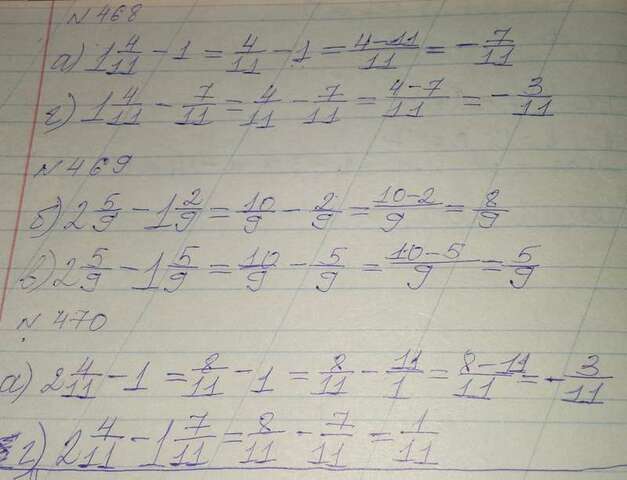 N 468
а) 1 4/11 - 1 = 4/11 - 1 = 4-11/11 = - 7/11
г) 1 4/11 - 7/11 = 4/11 - 7/11 = 4-7/11 = - 3/11
N 469
б) 2 5/9 - 1 2/9 = 10/9 - 2/9 = 10-2/9 = 8/9
в) 2 5/9 - 1 5/9 = 10/9 - 5/9 = 10-5/9 = 5/9
N 470
а) 2 4/11 - 1 = 8/11 - 1 = 8/11 - 11/1 = 8-11/11 = - 3/11
г) 2 4/11 - 1 7/11 = 8/11 - 7/11 = 1/11